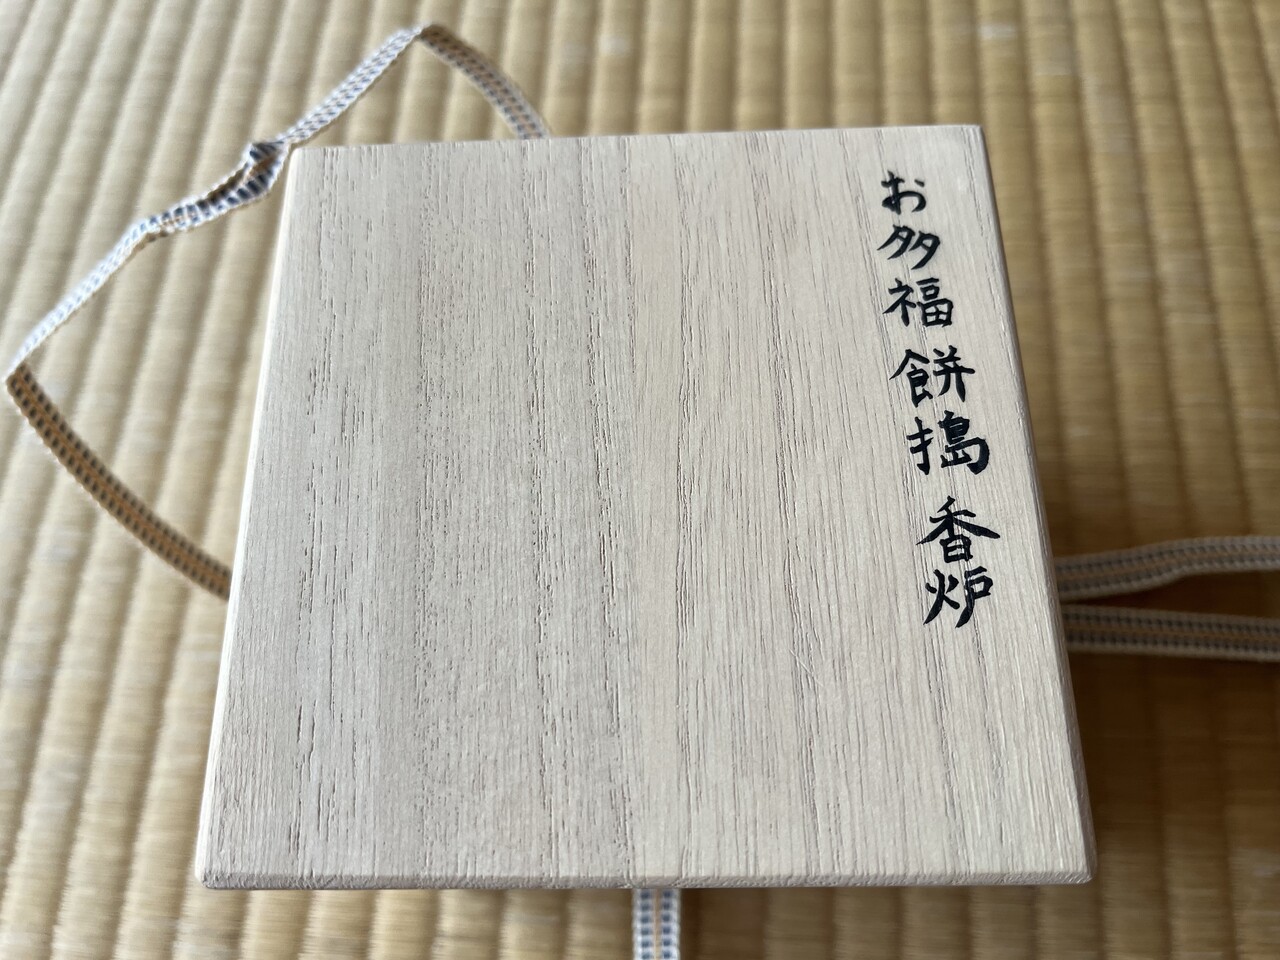 お多福餅搗香炉